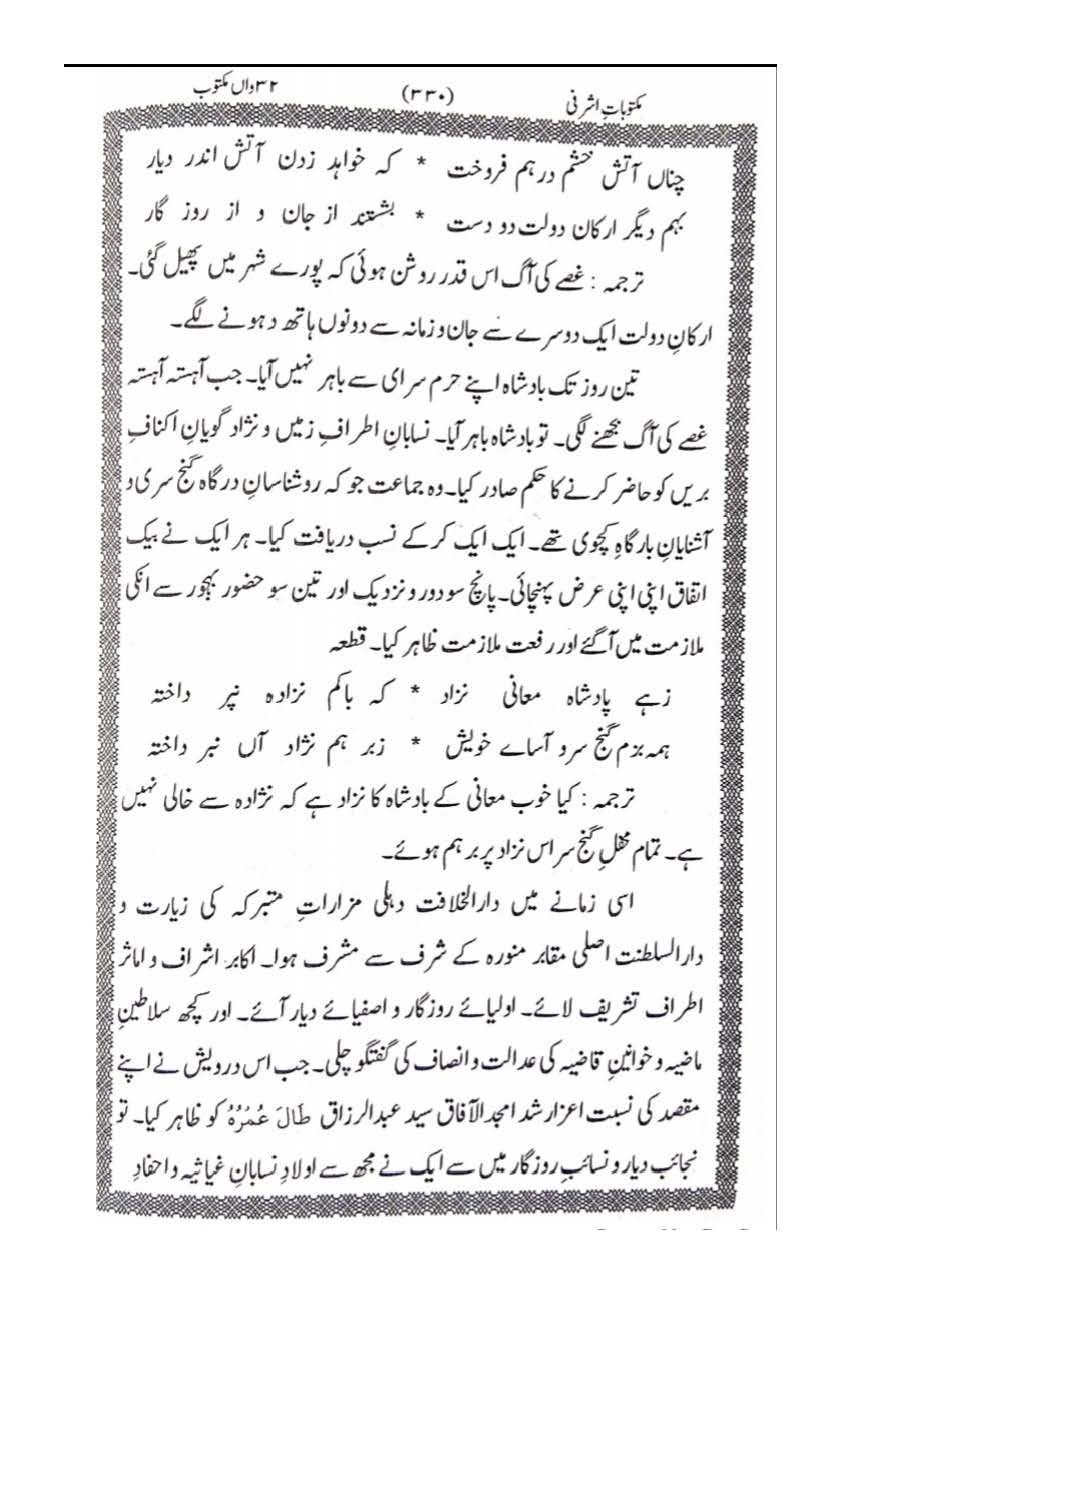 مکتوباتِ اشرفی (۳۳۰) ۳۲واں مکتوب
چناں آتش خشم درہم فروخت * کہ خواہد زدن آتش اندر دیار
بہم دیگر ارکان دولت دو دست * بشستند از جان و از روز گار
ترجمہ : غصے کی آگ اس قدر روشن ہوئی کہ پورے شہر میں پھیل گئی۔
ارکانِ دولت ایک دوسرے سے جان و زمانہ سے دونوں ہاتھ دہونے لگے۔
تین روز تک بادشاہ اپنے حرم سرای سے باہر نہیں آیا۔ جب آہستہ آہستہ
غصے کی آگ بجھنے لگی۔ تو بادشاہ باہر آیا۔ نسابانِ اطرافِ زمیں و نژاد گویانِ اکنافِ
بریں کو حاضر کرنے کا حکم صادر کیا۔ وہ جماعت جو کہ روشناسانِ درگاہ گنج سری و
آشنایانِ بارگاہِ کچوی تھے۔ ایک ایک کرکے نسب دریافت کیا۔ ہر ایک نے بیک
اتفاق اپنی اپنی عرض پہنچائی۔ پانچ سو دور و نزدیک اور تین سو حضور بہجور سے انکی
ملازمت میں آگئے اور رفعت ملازمت ظاہر کیا۔ قطعہ
زہے پادشاہ معانی نزاد * کہ باکم نزادہ نپر داختہ
ہمہ بزم گنج سرو آساے خویش * زبر ہم نژاد آں نبر داختہ
ترجمہ : کیا خوب معانی کے بادشاہ کا نزاد ہے کہ نژادہ سے خالی نہیں
ہے۔ تمام محفلِ گنج سر اس نزاد پر برہم ہوئے۔
اسی زمانے میں دارالخلافت دہلی مزاراتِ متبرکہ کی زیارت و
دارالسلطنت اصلی مقابر منورہ کے شرف سے مشرف ہوا۔ اکابر اشراف و اماثر
اطراف تشریف لائے۔ اولیائے روزگار و اصفیائے دیار آئے۔ اور کچھ سلاطینِ
ماضیہ و خوانینِ قاضیہ کی عدالت و انصاف کی گفتگو چلی۔ جب اس درویش نے اپنے
مقصد کی نسبت اعزار شد امجد الآفاق سید عبدالرزاق طَالَ عُمْرُہُ کو ظاہر کیا۔ تو
نجائب دیار و نسائبِ روزگار میں سے ایک نے مجھ سے اولادِ نسابانِ غیاثیہ و احفادِ